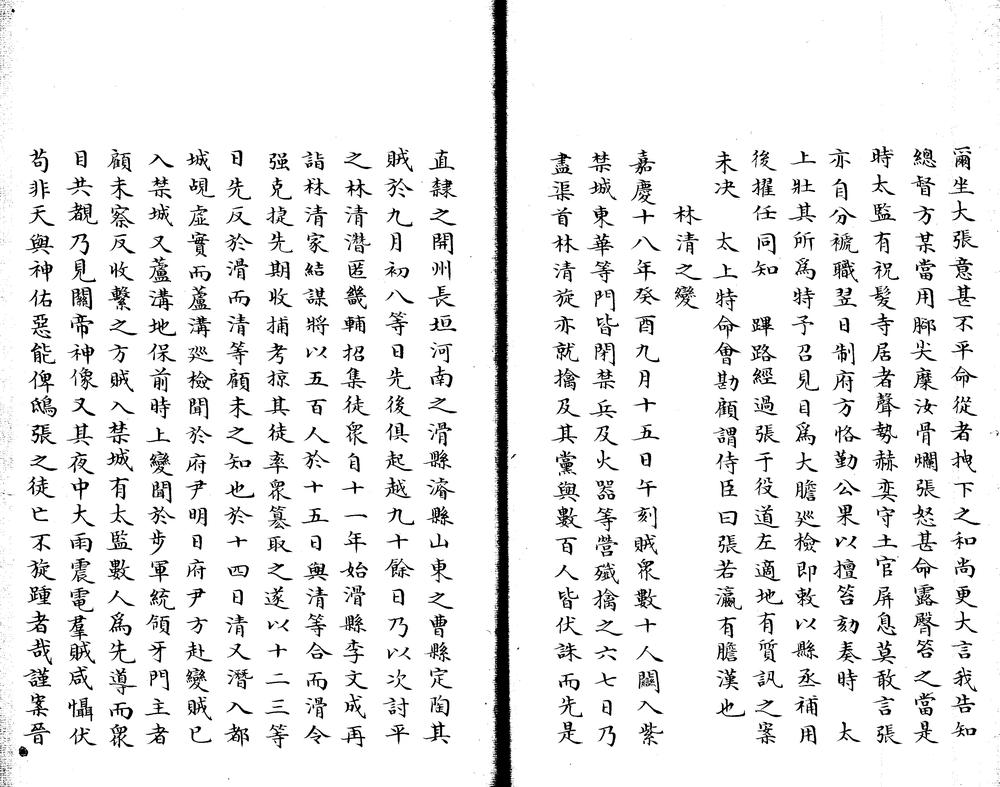 爾坐大張意甚不平命從者拽下之和尚更大言我告知
總督方某當用腳尖糜汝骨爛張怒甚命露臀笞之當是
時太監有祝髮寺居者聲勢赫奕守土官屏息莫敢言張
亦自分褫職翌日制府方恪勤公果以擅笞劾奏時　太
上壯其所為特予召見目為大膽廵檢即敕以縣丞補用
後擢任同知　蹕路經過張于役道左適地有質訊之案
未決　太上特命會勘顧謂侍臣曰張若瀛有膽漢也
林清之變
嘉慶十八年癸酉九月十五日午刻賊衆數十人闌入紫
禁城東華等門皆閉禁兵及火器等營殲擒之六七日乃
盡渠首林清旋亦就擒及其黨與數百人皆伏誅而先是
直隸之開州長垣河南之滑縣濬縣山東之曹縣定陶其
賊於九月初八等日先後俱起越九十餘日乃以次討平
之林清潛匿畿輔招集徒衆自十一年始滑縣李文成再
詣林清家結謀將以五百人於十五日與清等合而滑令
强克捷先期收捕考掠其徒率衆篡取之遂以十二三等
日先反於滑而清等顧未之知也於十四日清又潛入都
城覘虛實而蘆溝廵檢聞於府尹明日府尹方赴變賊已
入禁城又蘆溝地保前時上變聞於步軍統領牙門主者
顧未察反收繫之方賊入禁城有太監數人為先導而衆
目共覩乃見關帝神像又其夜中大雨震電羣賊咸懾伏
苟非天與神佑惡能俾鴟張之徒亡不旋踵者哉謹案晉